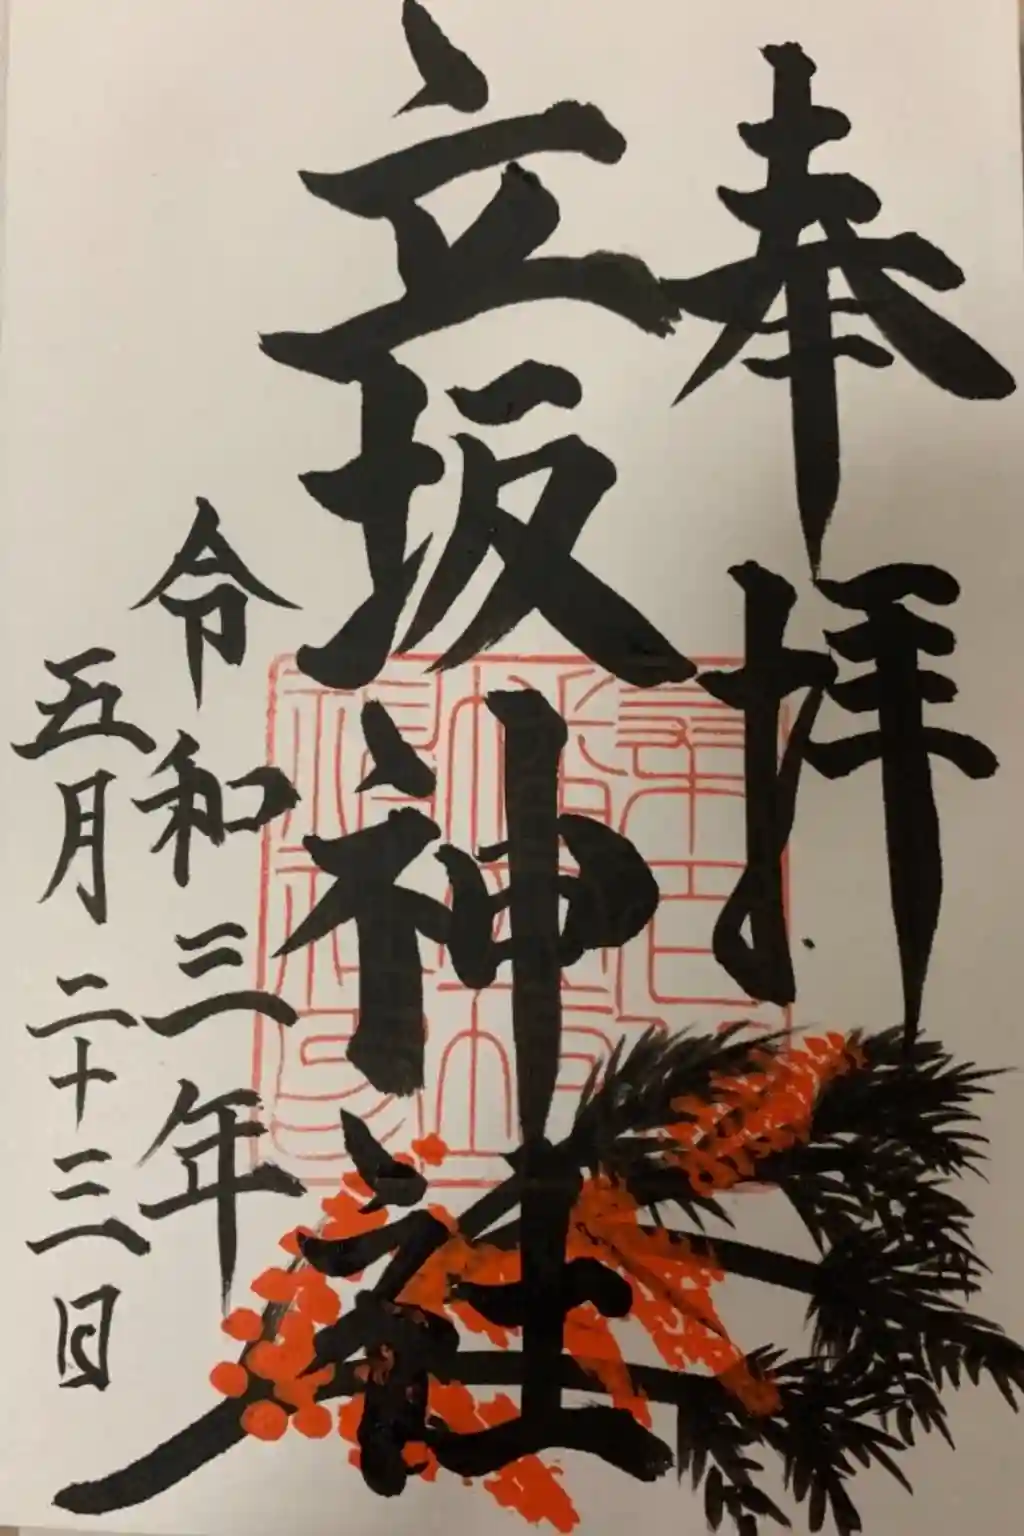 奉拝
立坂神社
令和三年
五月二十三日